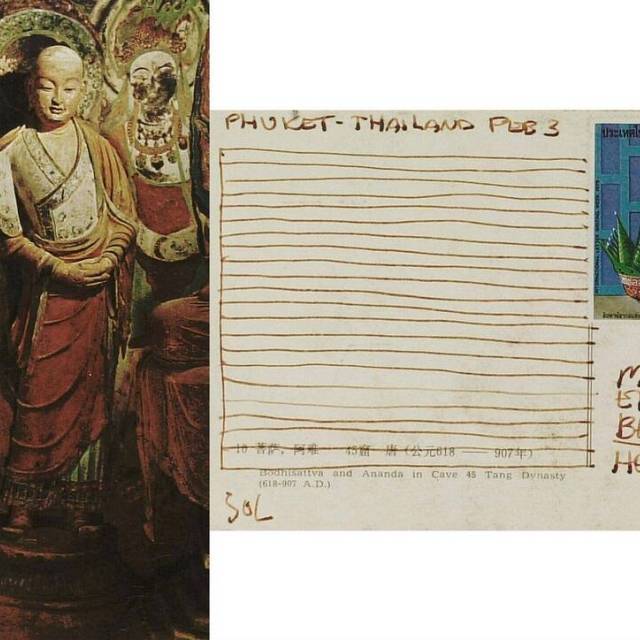 PHUKET - THAILAND FEB 3
ประเทศไ
M
E
B
HE
10 菩萨，阿难 45窟 唐（公元618 —— 907年）
Bodhisattva and Ananda in Cave 45 Tang Dynasty
(618-907 A.D.)
SOL